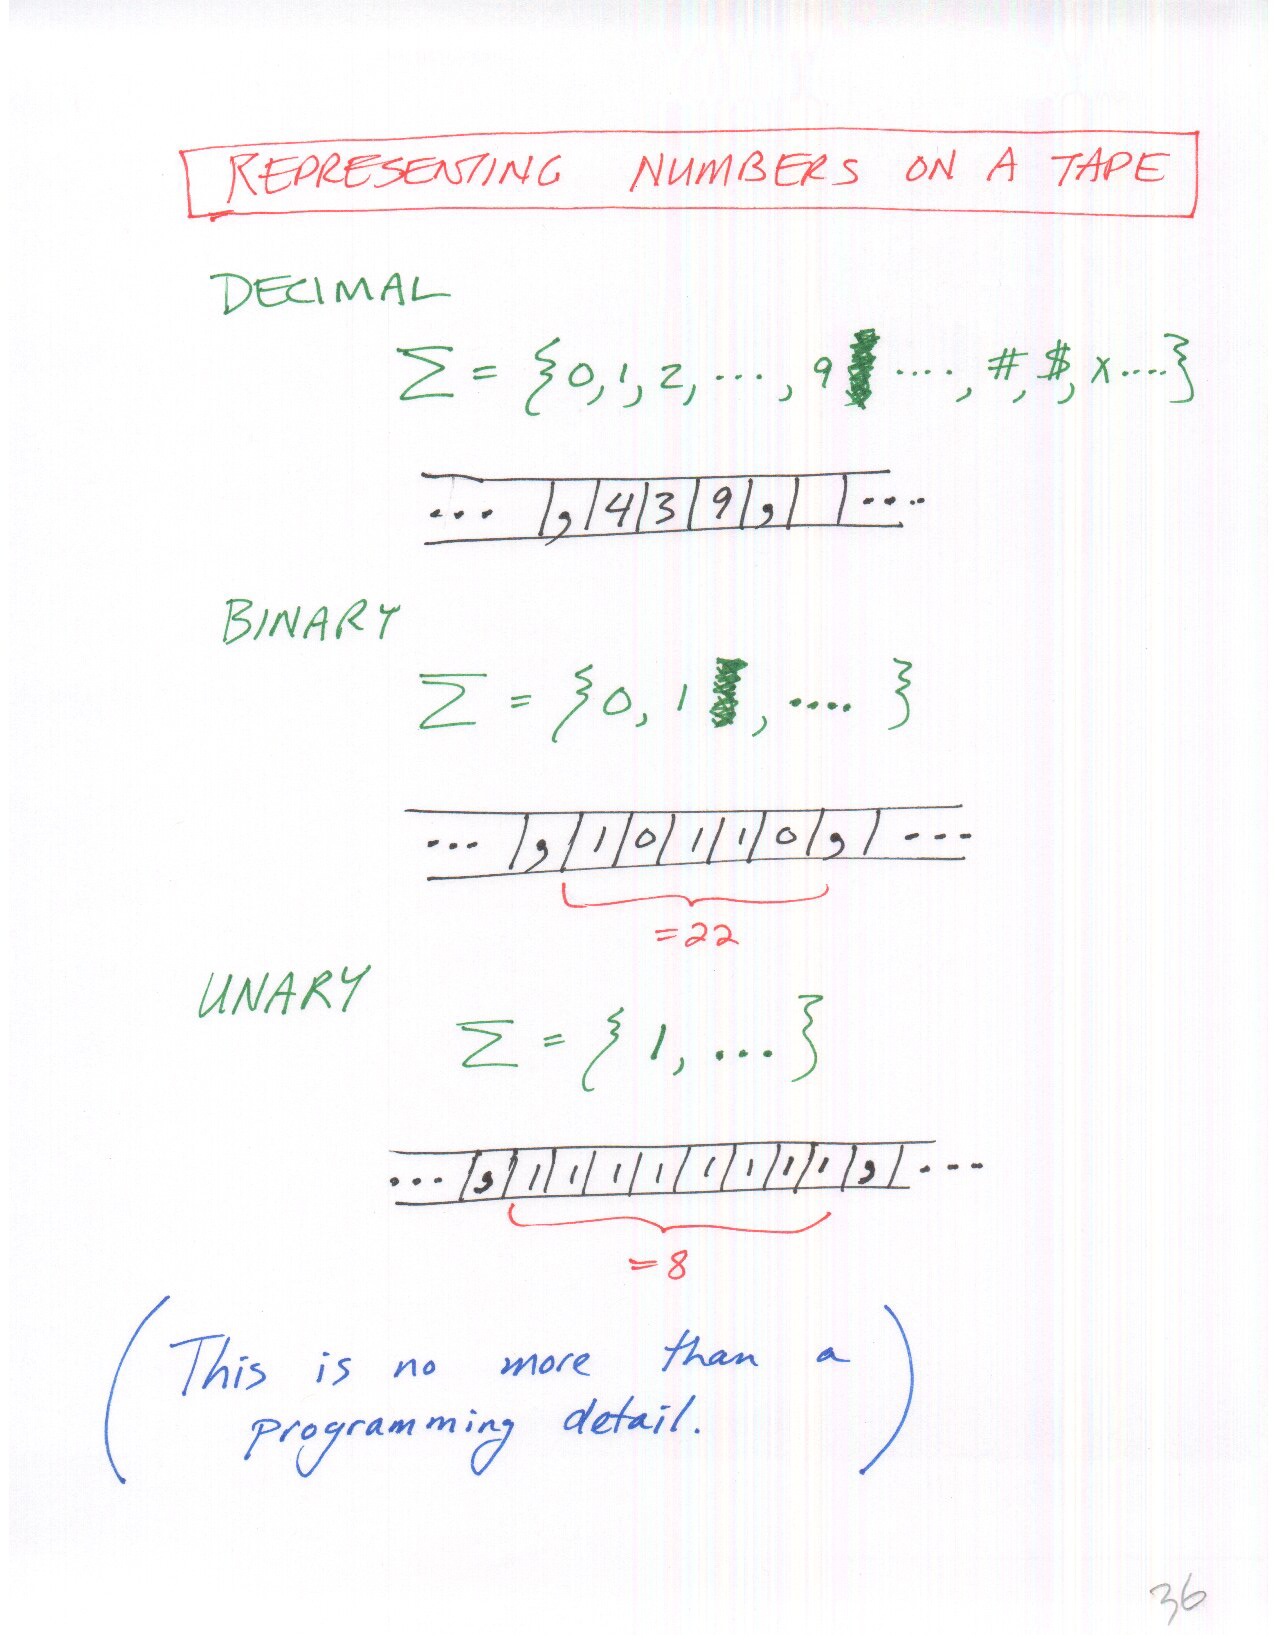 REPRESENTING NUMBERS ON A TAPE
DECIMAL
Σ = {0, 1, 2, ..., 9 ...., #, $, x....}
... , 4 3 9 , ....
BINARY
Σ = {0, 1 , .... }
... , 1 0 1 1 0 , ...
= 22
UNARY
Σ = { 1, ... }
... , 1 1 1 1 1 1 1 1 , ...
= 8
(This is no more than a
programming detail.)
36